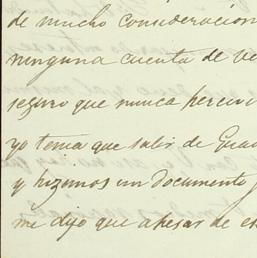 de mucho consideracion
ninguna cuenta de ve
seguro que nunca percio
yo tenia que salir de Gua
y hizomos un documento
me dijo que apesar de es